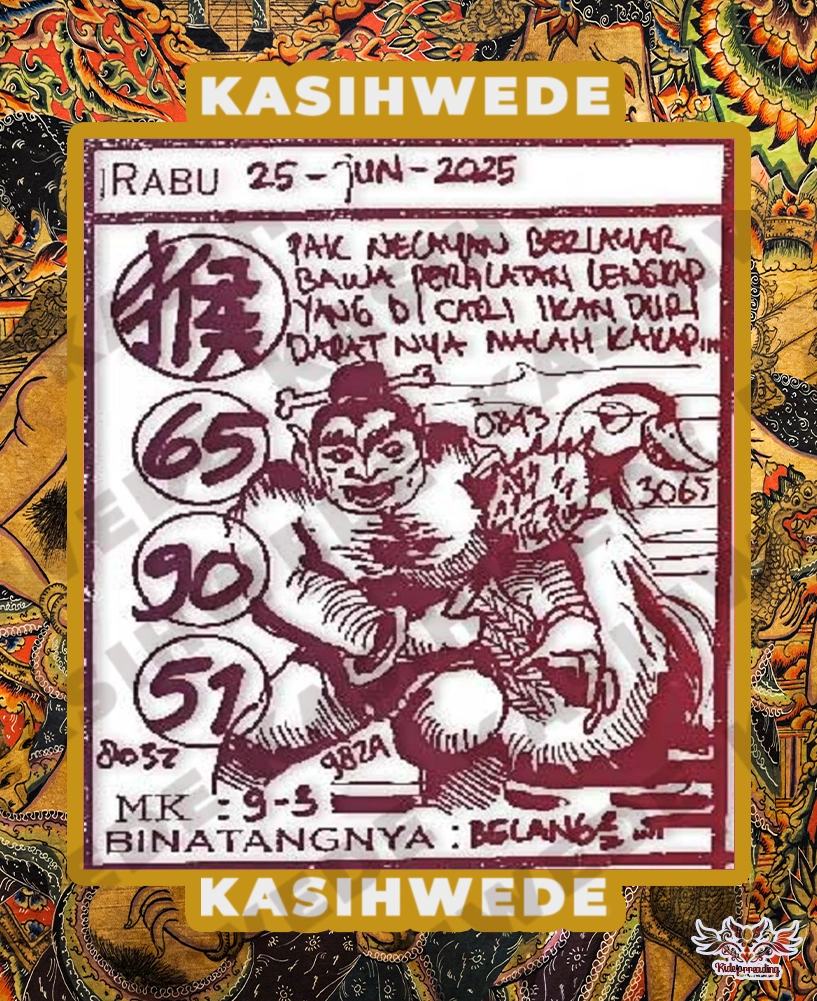 KASIHWEDE
RABU 25-JUN-2025
猴
PAK NELAYAN BERLAYAR
BAWA PERALATAN LENGKAP
YANG DI CARI IKAN DURI
DAPAT NYA MALAH KAKAP
65
0843
3065
90
51
8032
MK : 9-5
BINATANGNYA : BELANG2
KASIHWEDE